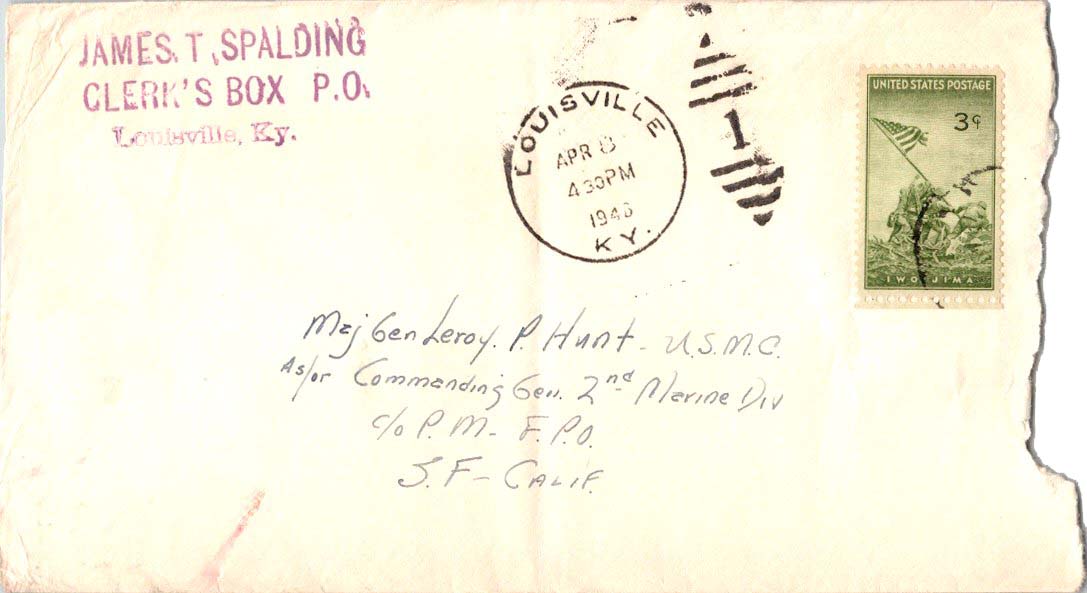 JAMES. T. SPALDING
CLERK'S BOX P.O.
Louisville, Ky.
LOUISVILLE
APR 8
4 30 PM
1946
KY.
1
UNITED STATES POSTAGE
3¢
IWO JIMA
Maj Gen Leroy. P. Hunt - U.S.M.C.
As/or Commanding Gen. 2nd Marine Div
c/o P.M - F.P.O.
S.F - CALIF.